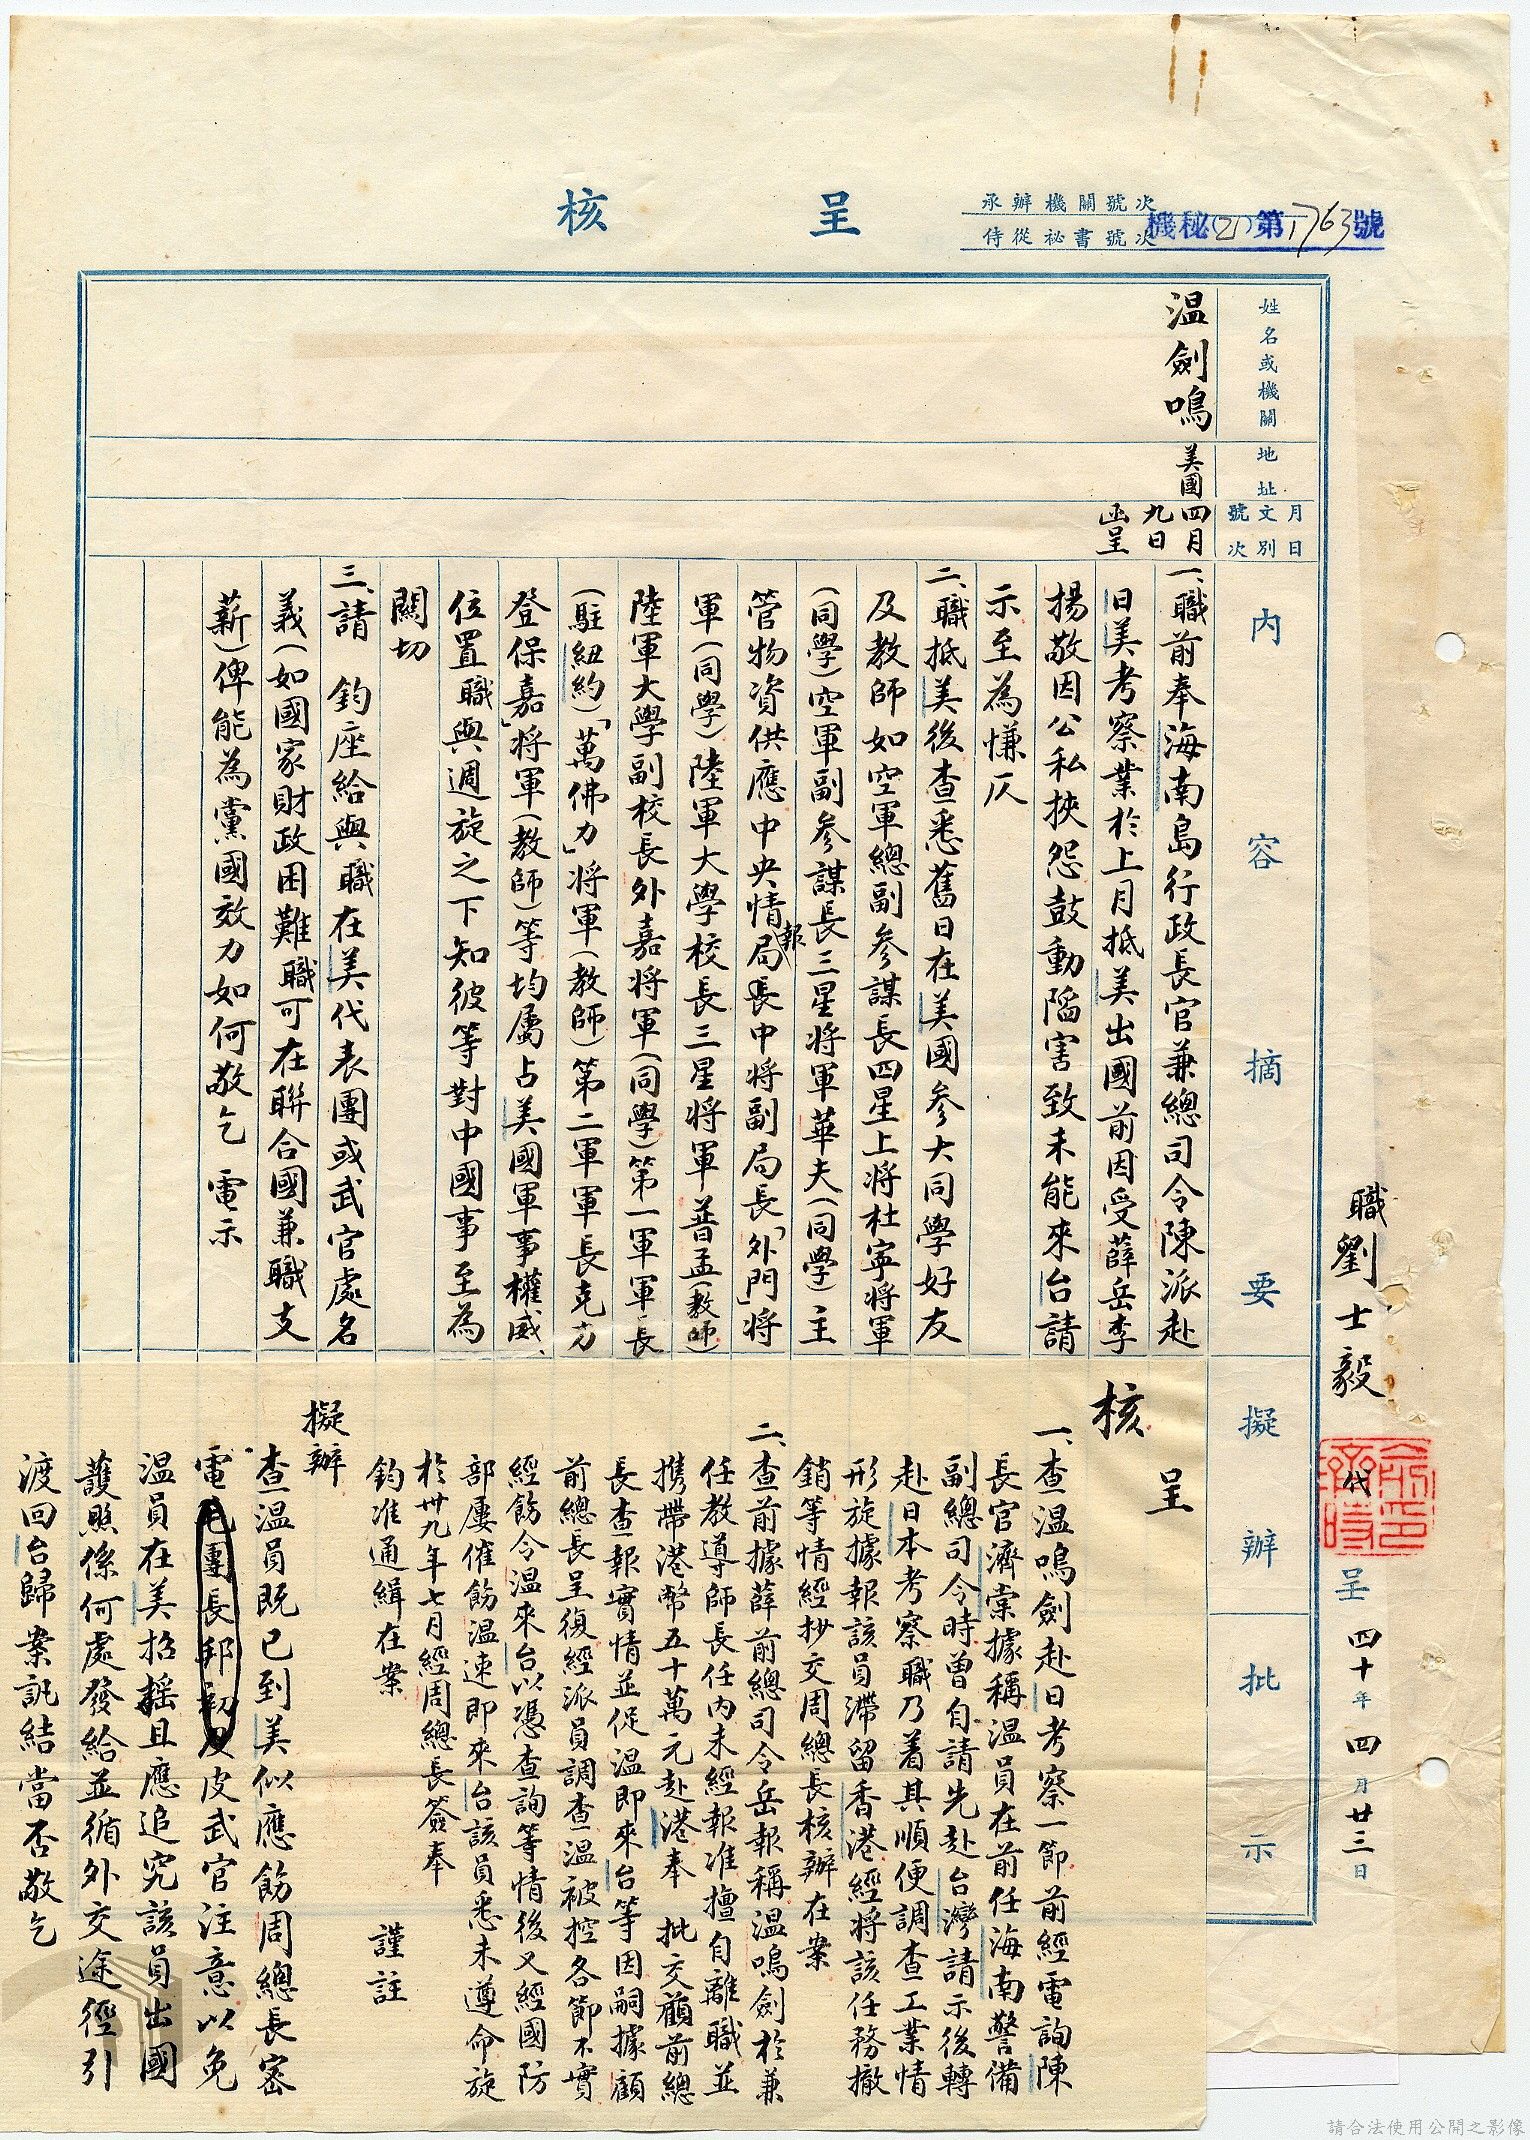 呈核
承辦機關號次
侍從祕書號次
機秘(21)第1763號
姓名或機關
地址
月日文別號次
內容摘要
擬辦
批示
温劍鳴
美國
四月
九日
函呈
一、職前奉海南島行政長官兼總司令陳派赴
日美考察業於上月抵美出國前因受薛岳李
揚敬因公私挾怨鼓動陷害致未能來台請
示至為慊仄
二、職抵美後查悉舊日在美國參大同學好友
及教師如空軍總副參謀長四星上將杜寧將軍
(同學)空軍副參謀長三星將軍華夫(同學)主
管物資供應中央情報局長中將副局長「外門」將
軍(同學)陸軍大學校長三星將軍普孟(教師)
陸軍大學副校長外嘉將軍(同學)第一軍軍長
(駐紐約)「萬佛力」將軍(教師)第二軍軍長克力
登保嘉」將軍(教師)等均屬占美國軍事權威、
位置職與週旋之下知彼等對中國事至為
關切
三、請 鈞座給與職在美代表團或武官處名
義(如國家財政困難職可在聯合國兼職支
薪)俾能為黨國效力如何敬乞 電示
核
呈
一、查温鳴劍赴日考察一節前經電詢陳
長官濟棠據稱温員在前任海南警備
副總司令時曾自請先赴台灣請示後轉
赴日本考察職乃着其順便調查工業情
形旋據報該員滯留香港經將該任務撤
銷等情經抄交周總長核辦在案
二、查前據薛前總司令岳報稱温鳴劍於兼
任教導師長任內未經報准擅自離職並
携帶港幣五十萬元赴港奉 批交顧前總
長查報實情並促温即來台等因嗣據顧
前總長呈復經派員調查温被控各節不實
經飭令温來台以憑查詢等情後又經國防
部屢催飭温速即來台該員悉未遵命旋
於卅九年七月經周總長簽奉
鈞准通緝在案
謹註
擬辦
查温員既已到美似應飭周總長密
電毛團長邦初及皮武官注意以免
温員在美招摇且應追究該員出國
護照係何處發給並循外交途徑引
渡回台歸案訊結當否敬乞
職劉士毅
代
呈 四十年四月廿三日
請合法使用公開之影像